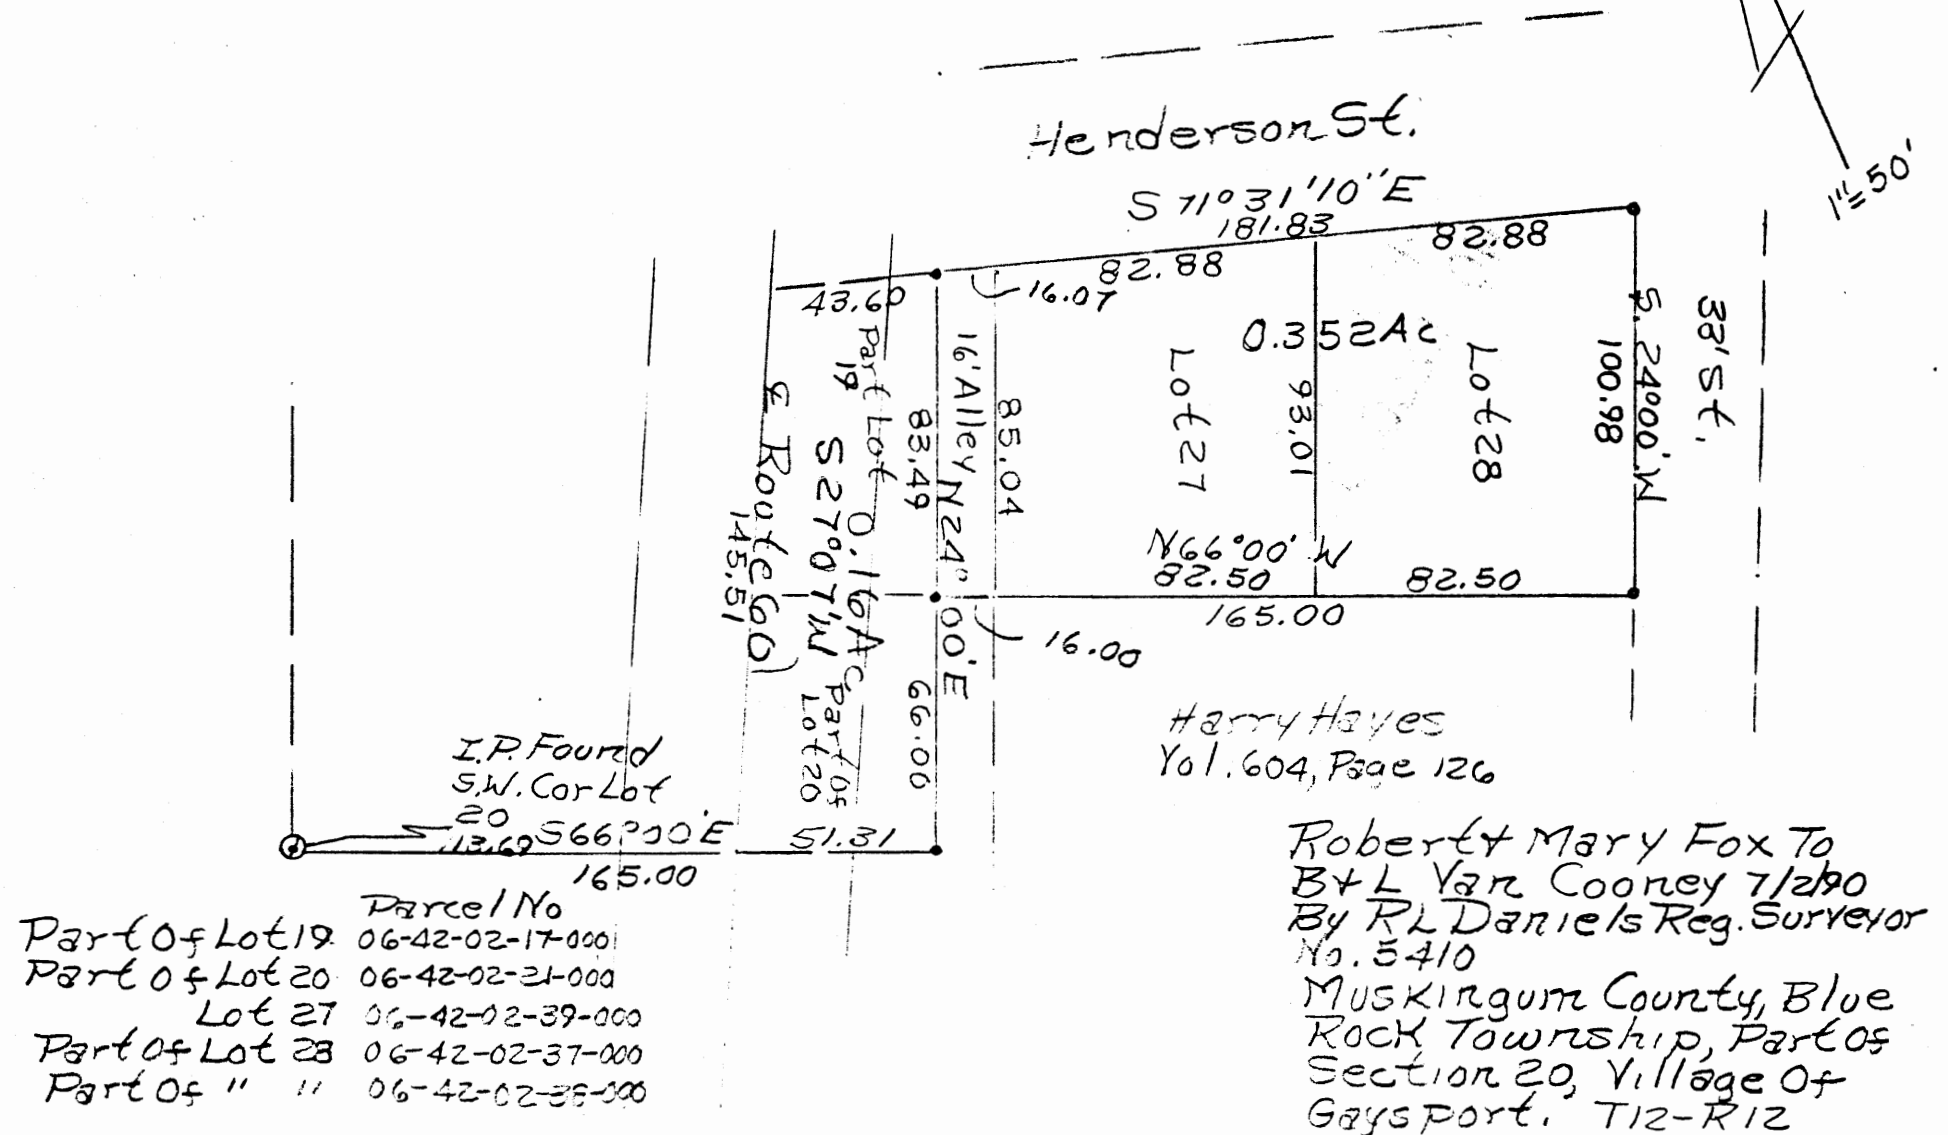 Henderson St.
1"=50'
S 71°31'10"E
181.83
82.88
82.88
43.60
16.07
0.352Ac
Part Lot
19
16' Alley
N24°00'E
83.49
85.04
Lot 27
93.01
Lot 28
S. 24°00' W
100.98
33' St.
℄ Route 60
145.51
S27°07'W
0.16Ac
N66°00' W
82.50
82.50
165.00
16.00
66.00
Part Of
Lot 20
Harry Hayes
Vol. 604, Page 126
I.P. Found
S.W. Cor Lot
20
S66°00'E
51.31
165.00
Parcel No
Part Of Lot 19 06-42-02-17-000
Part Of Lot 20 06-42-02-21-000
Lot 27 06-42-02-39-000
Part Of Lot 28 06-42-02-37-000
Part Of " " 06-42-02-38-000
Robert & Mary Fox To
B & L Van Cooney 7/2/90
By RL Daniels Reg. Surveyor
No. 5410
Muskingum County, Blue
Rock Township, Part Of
Section 20, Village Of
Gaysport. T12-R12